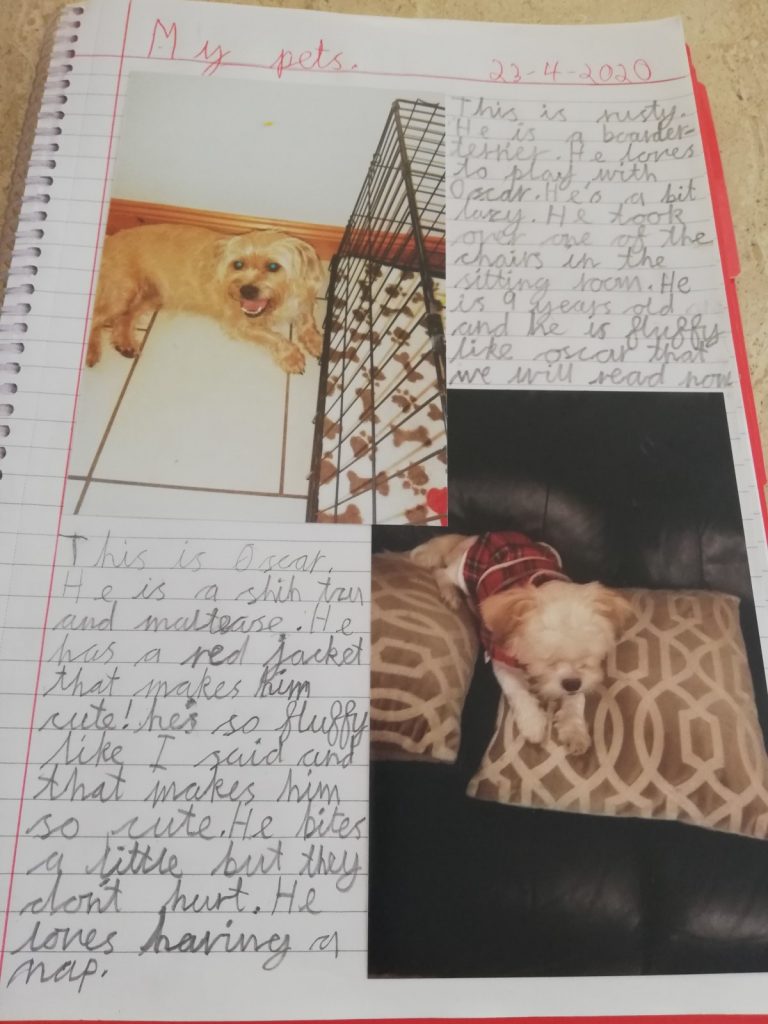 My pets.
23-4-2020
This is rusty.
He is a boarder-
terrier. He loves
to play with
Oscar. He's a bit
lazy. He took
over one of the
chairs in the
sitting room. He
is 9 years old
and he is fluffy
like oscar that
we will read now
This is Oscar.
He is a shih tzu
and maltease. He
has a red jacket
that makes him
cute! he's so fluffy
like I said and
that makes him
so cute. He bites
a little but they
don't hurt. He
loves having a
nap.